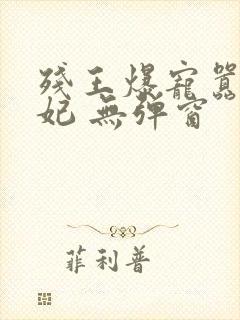 殘王爆寵囂
妃 無彈窗
菲利普